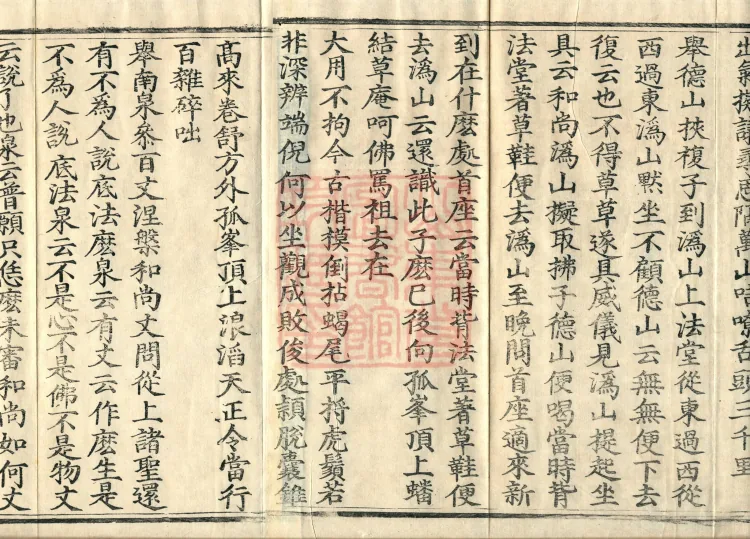 萬山舌頭三千里
舉德山挾複子到潙山上法堂從東過西從
西過東潙山黙坐不顧德山云無無便下去
復云也不得草草遂具威儀見潙山提起坐
具云和尚潙山擬取拂子德山便喝當時背
法堂著草鞋便去潙山至晚問首座適來新
到在什麽處首座云當時背法堂著草鞋便
去潙山云還識此子麽已後向孤峯頂上蟠
結草庵呵佛罵祖去在
大用不拘今古揩模倒拈蝎尾平捋虎鬚若
非深辨端倪何以坐觀成敗俊處頴脫囊錐
髙來卷舒方外孤峯頂上浪滔天正令當行
百雜碎咄
舉南泉叅百丈涅槃和尚丈問從上諸聖還
有不爲人說底法麽泉云有丈云作麽生是
不爲人說底法泉云不是心不是佛不是物丈
云說了也泉云普願只恁麽未審和尚如何丈